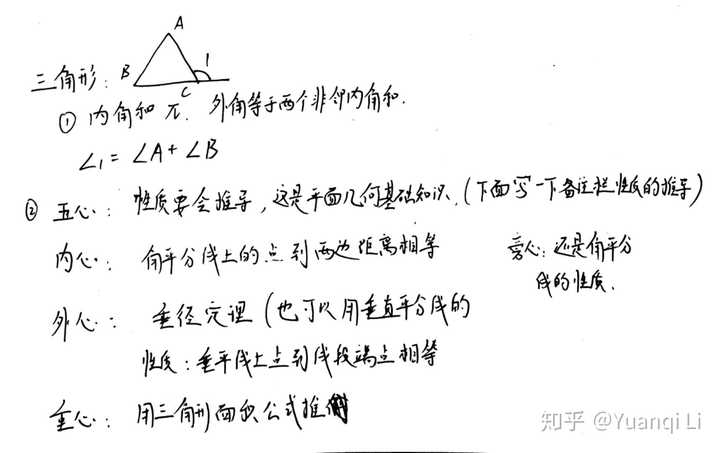 A
三角形: B C 1
① 内角和 π. 外角等于两个非邻内角和.
∠1 = ∠A + ∠B
② 五心: 性质要会推导, 这是平面几何基础知识. (下面写一下备注栏性质的推导)
内心: 角平分线上的点到两边距离相等
旁心: 还是角平分
线的性质.
外心: 垂径定理 (也可以用垂直平分线的
性质: 垂平线上点到线段端点相等
重心: 用三角形面积公式推
知乎 @Yuanqi Li